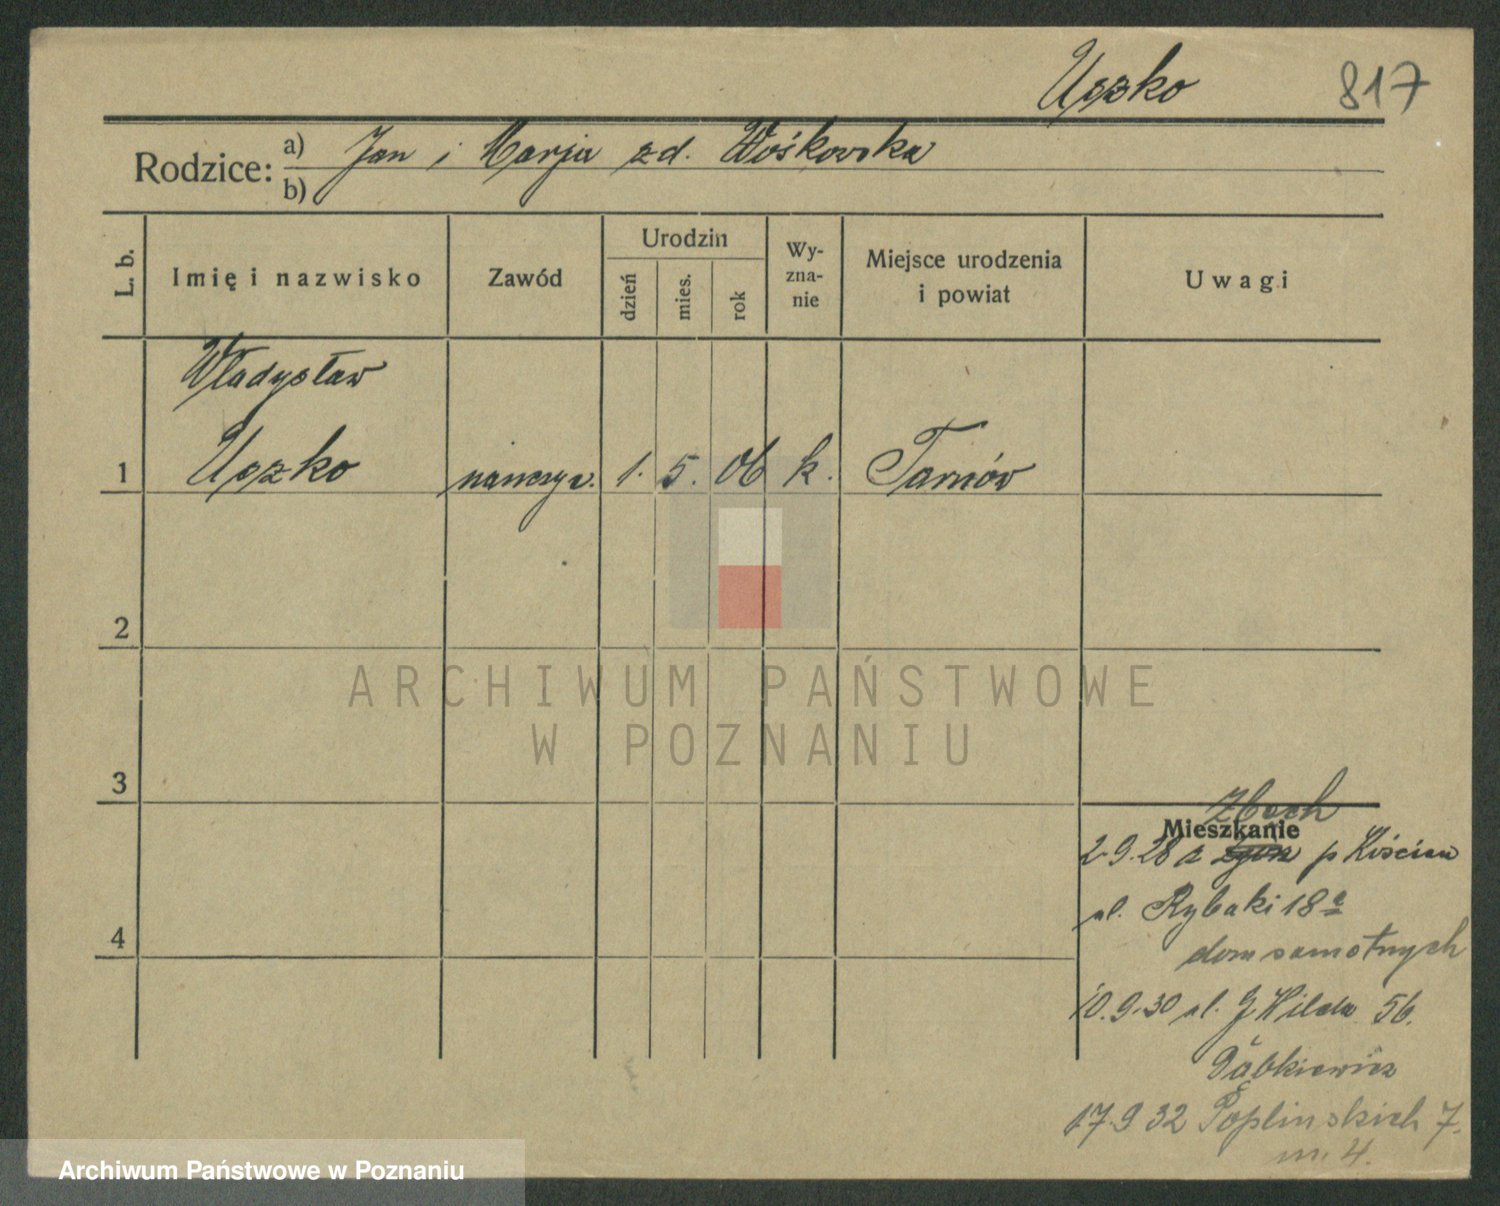 Uszko 817
Rodzice: a) Jan i Marja zd. Wośkowska
b)
L. b. Imię i nazwisko Zawód Urodzin dzień mies. rok Wy-zna-nie Miejsce urodzenia i powiat Uwagi
Władysław
1 Uszko nauczyc. 1. 5. 06 k. Tarnów
2
ARCHIWUM PAŃSTWOWE
W POZNANIU
3
Zbęch
Mieszkanie
2.9.28 z p Kościan
ul. Rybaki 18a
4 dom samotnych
10.9.30 ul. G Wilda 56.
Dąbkiewicz
17.9 32 Poplinskich 7.
m. 4.
Archiwum Państwowe w Poznaniu